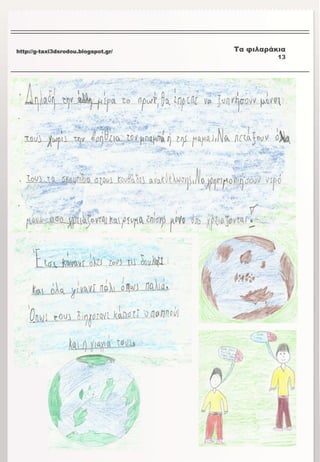 http://g-taxi3dsrodou.blogspot.gr/
Τα φιλαράκια
13
Δηλαδή την άλλη μέρα το πρωί, θα έπρεπε να ξυπνήσουν μόνοι
τους χωρίς την βοήθεια του μπαμπά ή της μαμάς. Να πετάξουν όλα
τους τα σκουπίδια στους κάδους ανακύκλωσης. Να χρησιμοποιήσουν νερό
μόνο όσο χρειάζονται και ρεύμα επίσης μόνο όσο χρειάζονται.
Έτσι κάνανε όλες τους τις δουλειές
και όλα γίνανε πάλι όπως παλιά.
Όπως τους διηγόταν κάποτε ο παππούς
και η γιαγιά τους.